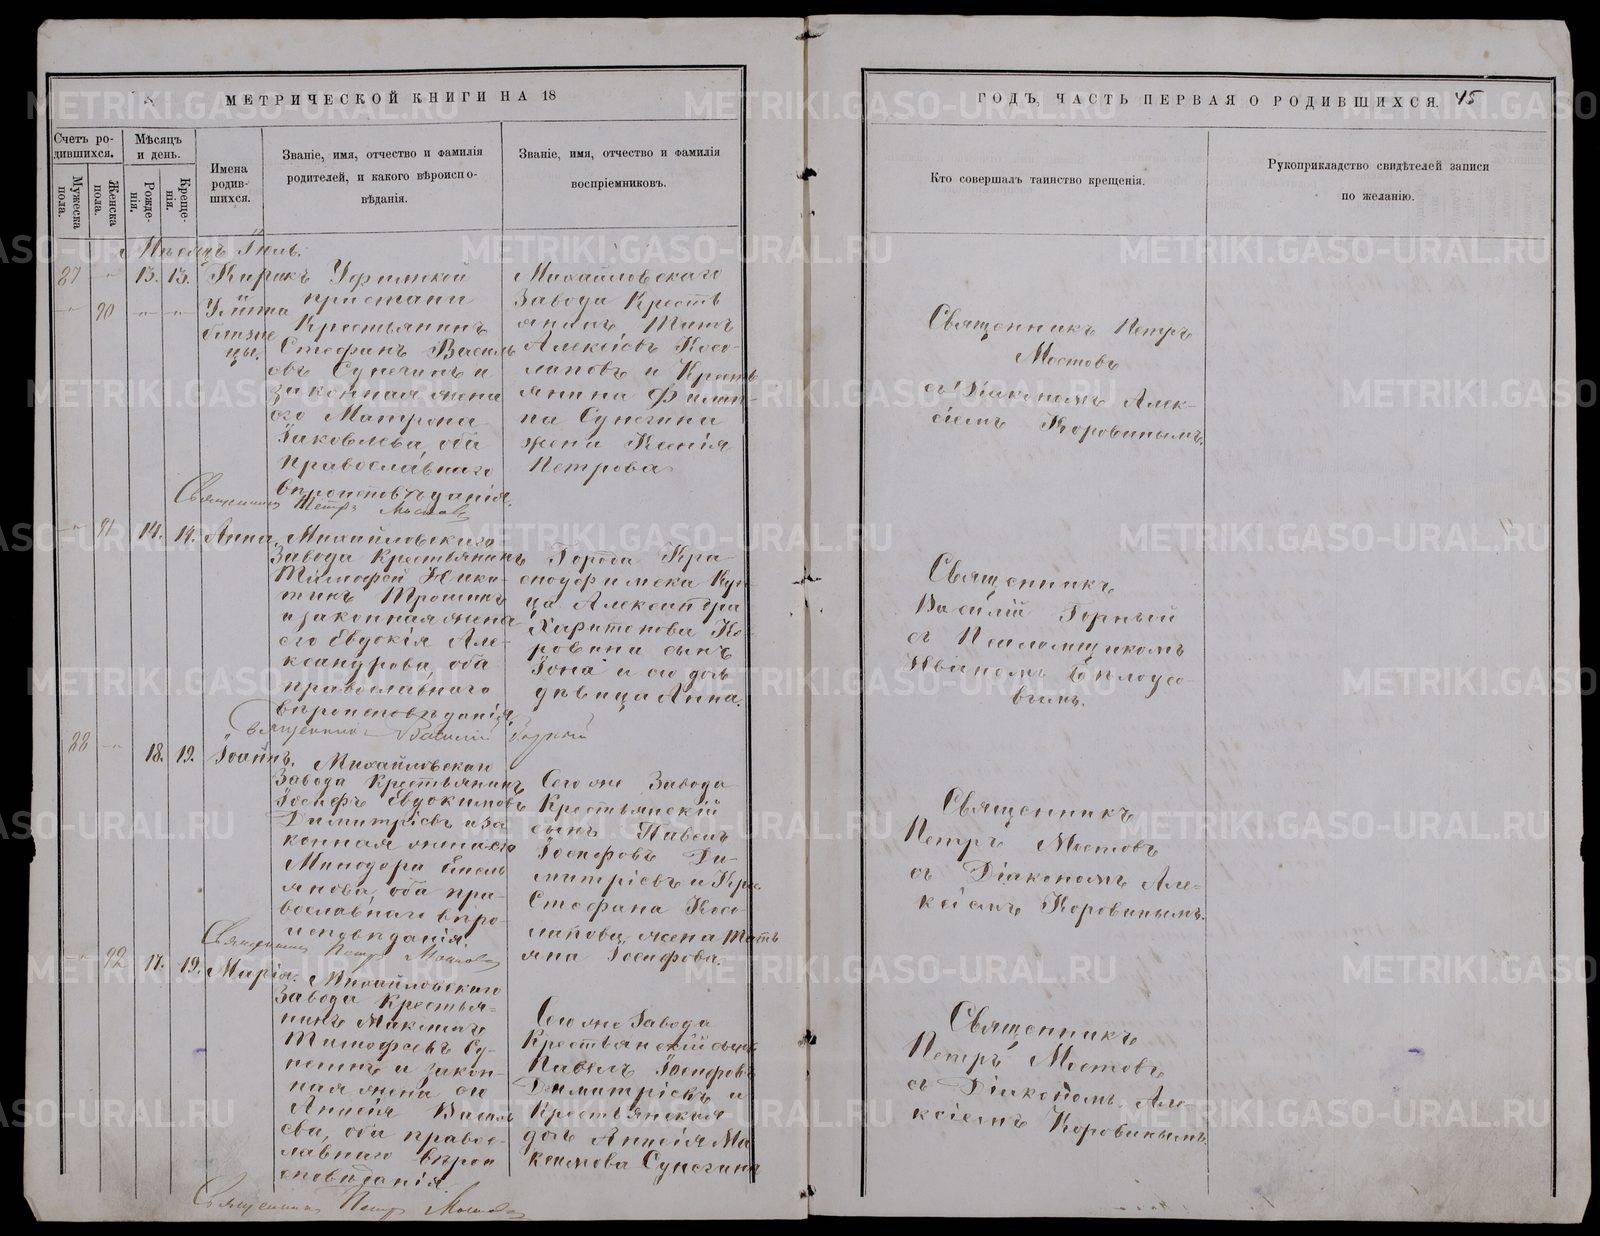 МЕТРИЧЕСКОЙ КНИГИ НА 18
ГОДЪ, ЧАСТЬ ПЕРВАЯ О РОДИВШИХСЯ. 45
Счетъ ро-
дившихся.
Мужеска
пола.
Женска
пола.
Мѣсяцъ
и день.
Рожде-
нія.
Креще-
нія.
Имена
родив-
шихся.
Званіе, имя, отчество и фамилія
родителей, и какого вѣроиспо-
вѣданія.
Званіе, имя, отчество и фамилія
воспріемниковъ.
Кто совершалъ таинство крещенія.
Рукоприкладство свидѣтелей записи
по желанію.
Мѣсяцъ Іюль.
87 13. 13. Кирикъ
90 Улита
близне
цы.
Уфимской
пристани
Крестьянинъ
Стефанъ Василь
евъ Сунегинъ и
законная жена
его Матрона
Іаковлева, оба
православнаго
вѣроисповѣданія.
Михайловскаго
Завода Кресть
янинъ Титъ
Алексіевъ Косо-
лаповъ и Кресть
янина Филип-
па Сунегина
жена Ксенія
Петрова
Священникъ Петръ
Мостовъ
съ Діакономъ Алек-
сіемъ Коровинымъ.
Священникъ Петръ Мостовъ
91 14. 14. Анна.
Михайловскаго
Завода Крестьянинъ
Тимофей Ники-
тинъ Трошинъ
и законная жена
его Евдокія Але-
ксандрова, оба
православнаго
вѣроисповѣданія.
Города Кра-
сноуфимска Куп-
ца Александра
Харитонова Ко-
ровина сынъ
Іона и его дочь
дѣвица Анна.
Священникъ
Василій Горный
съ Псаломщикомъ
Иваномъ Бѣлоусо-
вымъ.
Священникъ Василій Горный
88 18. 19. Іоаннъ.
Михайловскаго
Завода Крестьянинъ
Іосифъ Евдокимовъ
Димитріевъ и за
конная жена его
Минодора Емель
янова, оба пра-
вославнаго вѣро-
исповѣданія.
Сего же Завода
Крестьянскій
сынъ Павелъ
Іосифовъ Ди-
митріевъ и Кре
Стефана Косо-
лапова, жена Тать
яна Іосифова.
Священникъ
Петръ Мостовъ
съ Діакономъ Але-
ксіемъ Коровинымъ.
Священникъ Петръ Мостовъ
92 17. 19. Марія.
Михайловскаго
Завода Крестья-
нинъ Максимъ
Тимофеевъ Су-
негинъ и закон-
ная жена его
Аннисія Василь
ева, оба правос-
лавнаго вѣрои
сповѣданія.
Сего же Завода
Крестьянскій сынъ
Павелъ Іосифовъ
Димитріевъ и
Крестьянская
дочь Аннисія Ма
ксимова Сунегина
Священникъ
Петръ Мостовъ
съ Діакономъ Але-
ксіемъ Коровинымъ.
Священникъ Петръ Мостовъ
METRIKI.GASO-URAL.RU